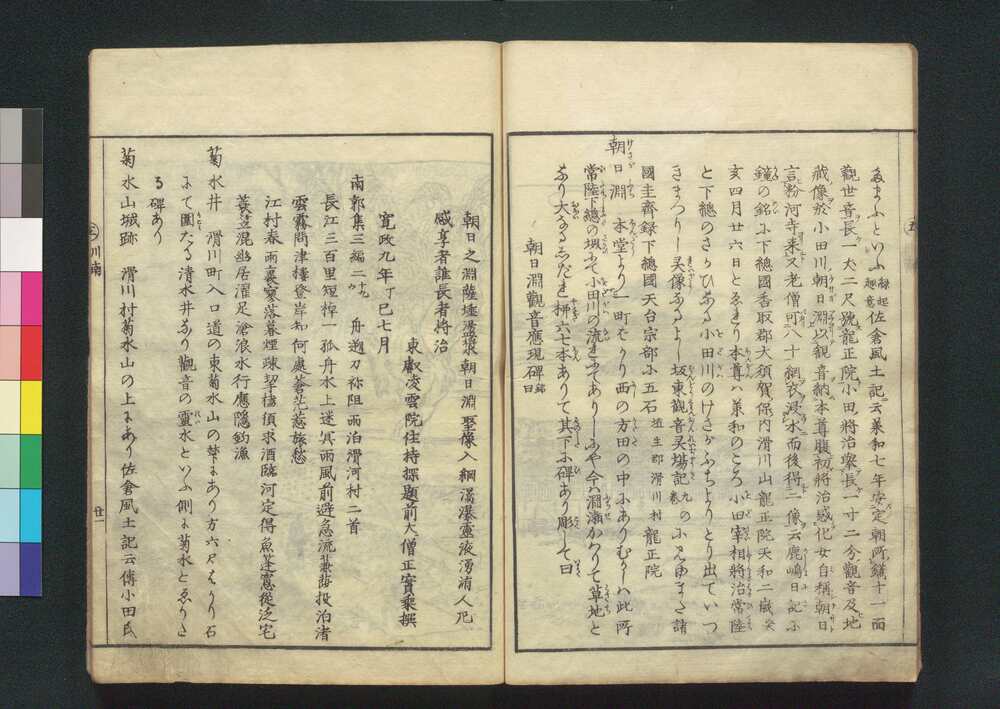 たまふといふ 縁起趣意 佐倉風土記云葉和七年安定朝所鑄十一面
觀世音長一丈二尺號龍正院小田將治槃長一寸二分觀音及地
藏像於小田川朝日淵以觀音納本尊腹初將治感化女自稱朝日
言粉河寺来又老僧可八十綱衣浸水而後得二像云鹿嶋日記に
鐘の銘に下總國香取郡大須賀保内滑川山龍正院天和二歳癸
亥四月廿六日とゑりり本尊ハ葉和のころ小田宰相將治常陸
と下總のさかひなる小田川のけさがふちよりとり出ていつ
きまつりし灵像なるよし坂東觀音灵場記九の巻に見ゆまた諸
國圭齊録下總國天台宗部に五石 埴生郡滑川村 龍正院
朝日淵 本堂より一町はかり西の方田の中にありむかしハ此所
常陸下總の堺にて小田川の流きてありしにや今ハ淵瀬かハりて草地と
なり大なるしだれ栁六七本ありて其下に碑あり彫して曰
朝日淵觀音應現碑 銘曰
朝日之淵薩埵灵蹤朝日淵聖像入綱滿瀑靈液湧浦人凡
感享者誰長者將治
東叡凌雲院住持探題前大僧正實乘撰
寛政九年丁巳七月
南郭集三編二ノ十九ウ 舟遡刀祢阻雨泊滑河村二首
長江三百里短棹一孤舟水上迷冥雨風前避急流蒹葭投泊渚
雲霧問津樓登岸知何處蒼茫惹旅愁
江村春雨裏寒落暮煙疎挈榼須求酒臨河定得魚蓬窓從泛宅
蓑笠混幽居濯足滄浪水行應隱釣漁
菊水井 滑川町入口道の東菊水山の梺にあり方六尺はかり石
にて圍たる清水井なり觀音の靈水といふ側に菊水とゑりた
る碑あり
菊水山城跡 滑川村菊水山の上にあり佐倉風土記云傳小田氏
川南
廿一
五